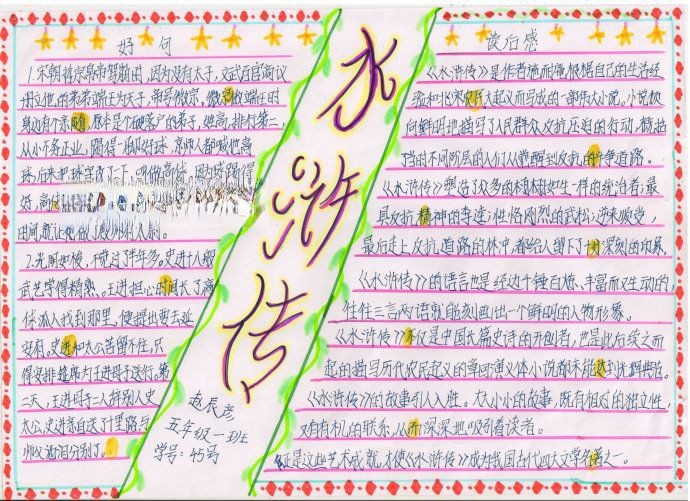 好句
1.宋朝哲宗皇帝驾崩时,因为没有太子,文武百官商议
册立他的弟弟端王为天子,
身边有个亲随,原本是个破落户的弟子,姓高,排行第二,
从小不务正业,踢得一脚好球,京师人都喊他高
球,后来把球字改了一下,叫做高俅,因为球踢得
好,高俅
2.光阴如梭,不觉过了半年多。史进十八般
武艺学得精熟。王进担心时间长了高
俅派人找到那里,便提出要去延
安府,史进和太公苦留不住,只
得安排筵席为王进母子送行。第
二天,王进母子二人辞别人史
太公,史进亲自送了十里路
师父洒泪分别了。
水浒传
赵辰彦
五年级一班
学号:45号
读后感
《水浒传》是作者施耐庵根据自己的生活经
验和北宋农民大起义而写成的一部伟大小说,小说极
向鲜明地描写了人民群众反抗压迫的行动,概括
的不同阶层的人们从觉醒到反抗的斗争道路。
《水浒传》塑造了众多的栩栩如生一样的统治者,最
具反抗精神的李逵,性格刚烈的武松,逆来顺受,
最后走上反抗道路的林冲,都给人留下了十分深刻的印象。
《水浒传》的语言也是经过千锤百炼、丰富而又生动的,
往往三言两语就能刻画出一个鲜明的人物形象。
《水浒传》不仅是中国长篇史诗的开创者,也是此后续之而
起的描写历代农民起义的章回演义体小说都未能达到
《水浒传》的故事引人入胜,大大小小的故事,既有相对的独立性,
又有有机的联系,从而深深地吸引着读者。
正是这些艺术成就,才使《水浒传》成为我国古代四大文学名著之一。